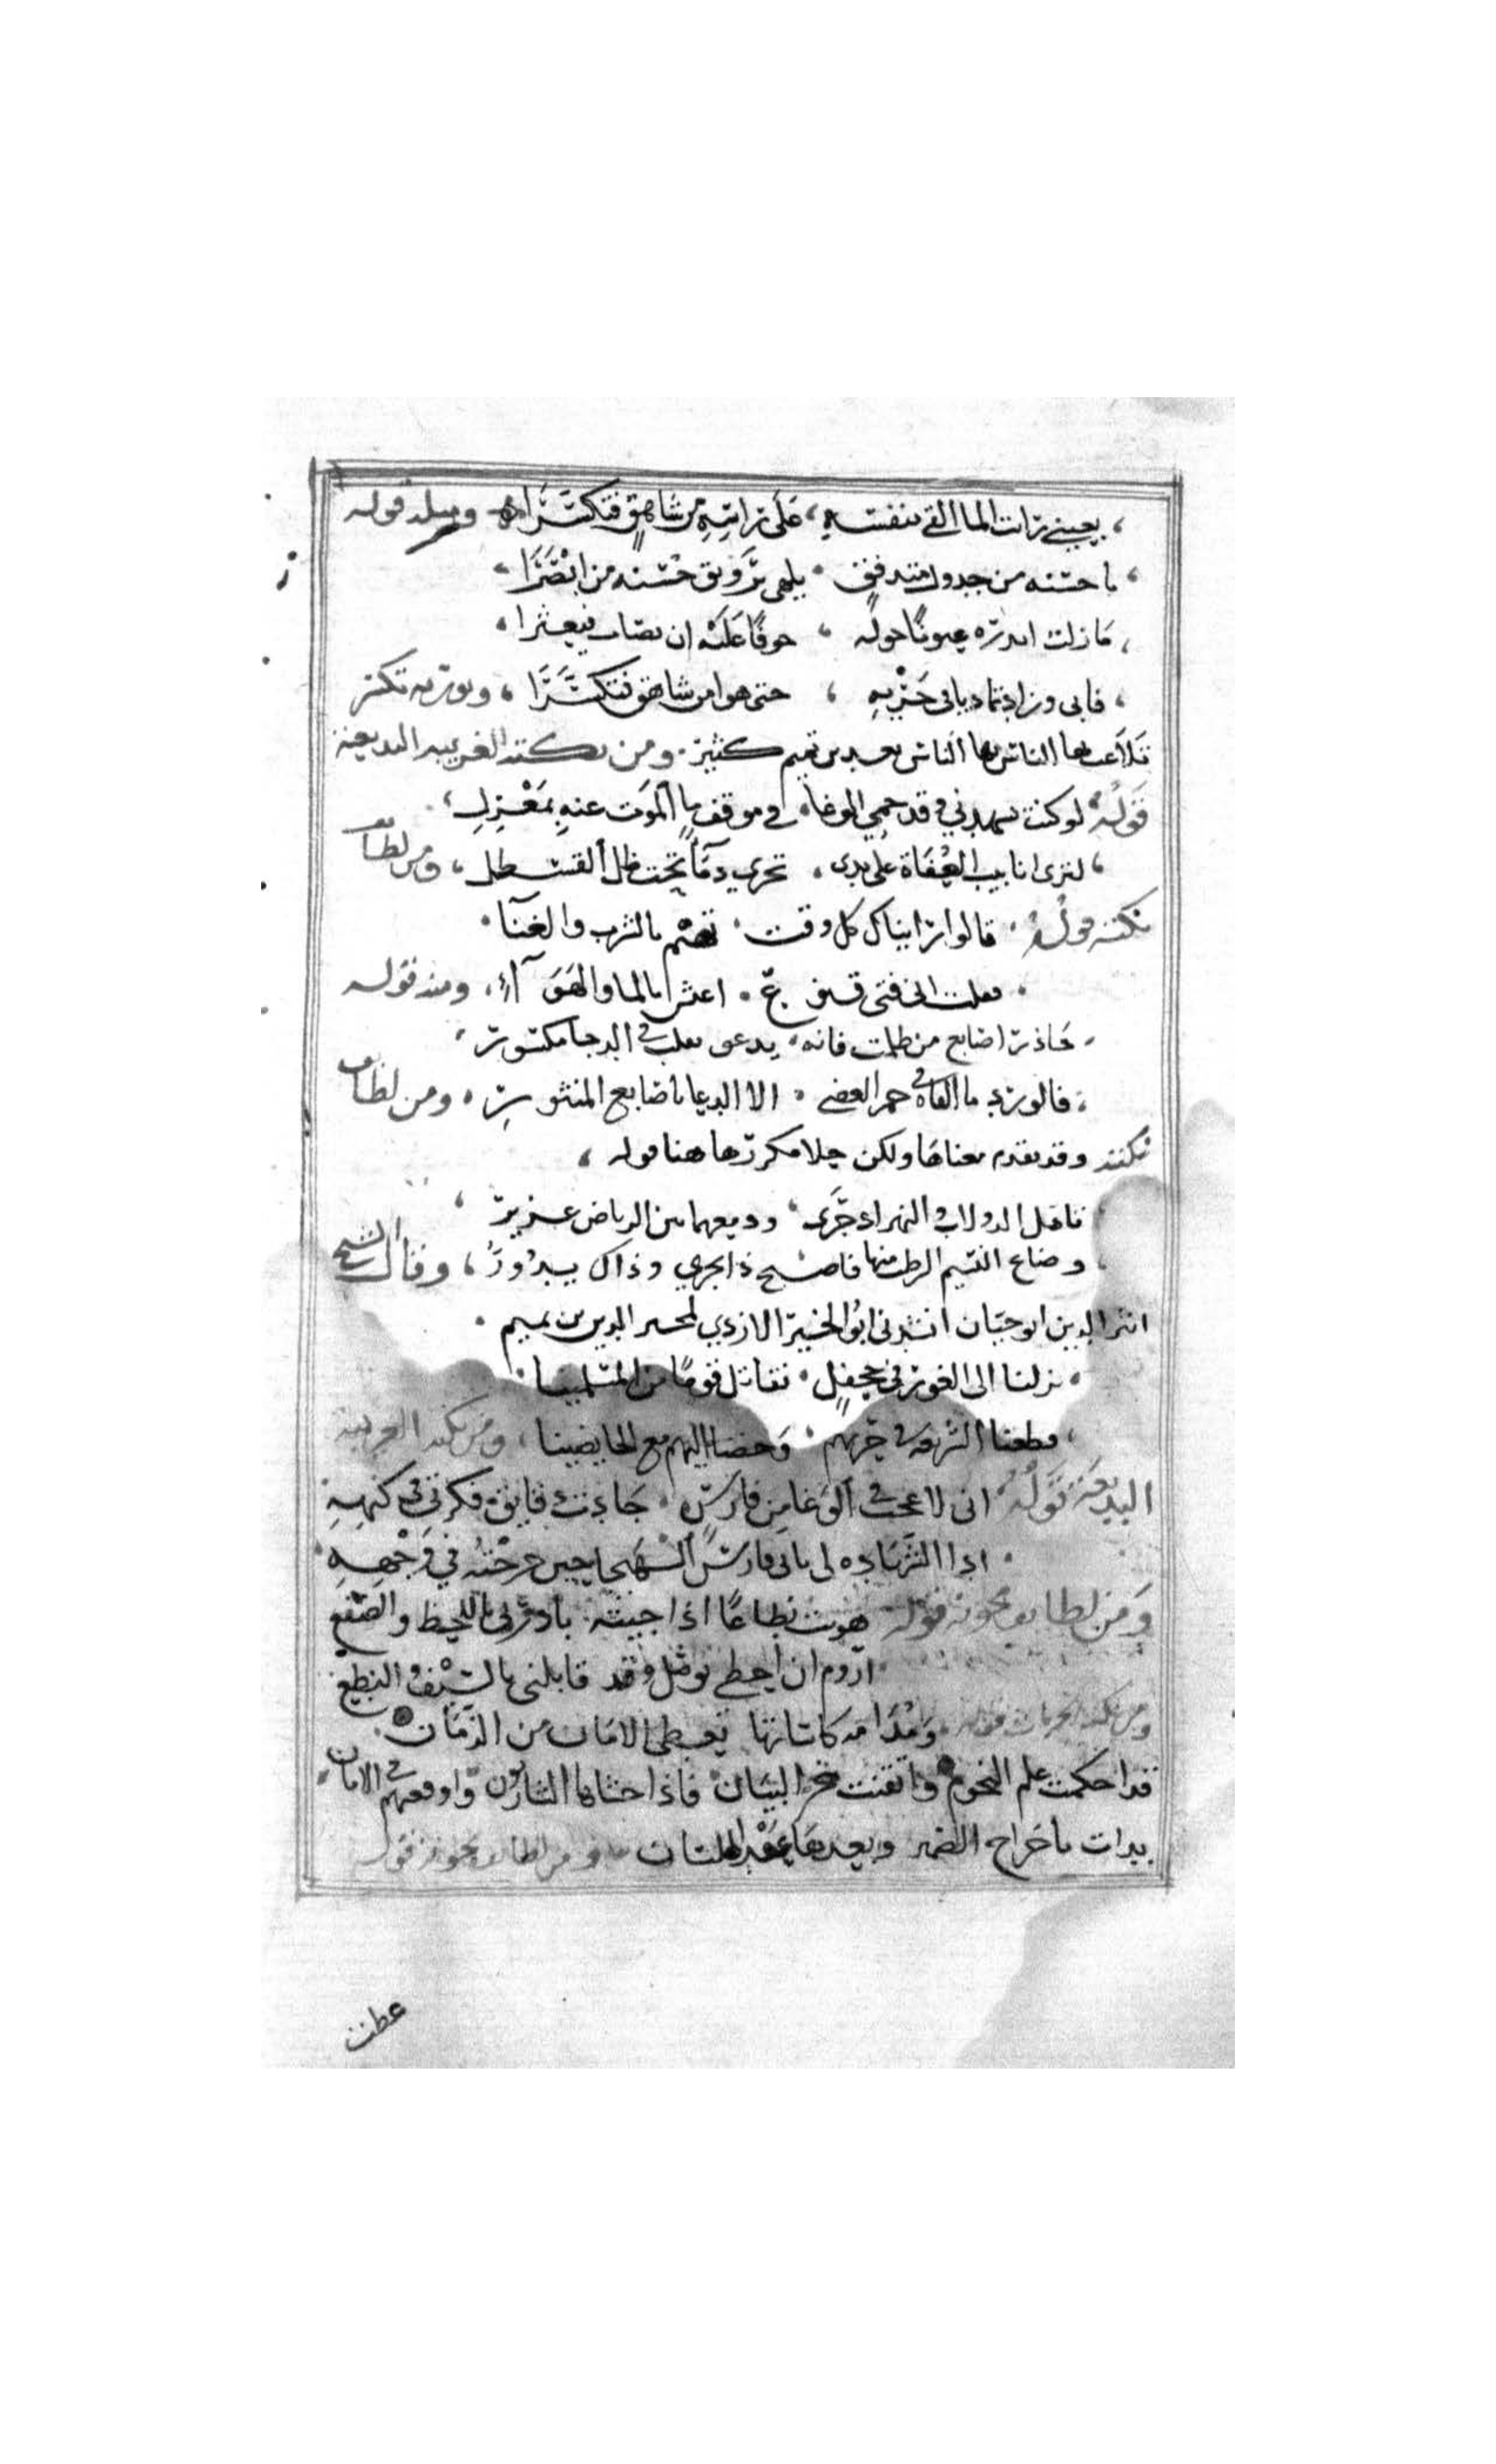 بعيني رات الما القى بنفسه، على راسه من شاهق فتكسرا ومثله قوله
ياحسنه من جدول متدفق ، يلهي برونق حسنه من ابصرا
ما زلت انذره عيونا حوله ، خوفا عليه ان يصاب فيعثرا
فابى وزاد تماديا في جريه ، حتى هوا من شاهق فتكسرا ،
تلاعب بها الناس بعد بن تميم كثير . ومن نكته الغريبه البديعة
قوله لوكنت تشهدني وقد حمي الوغا، في موقف ما الموت عنه بمعزل
لترى انابيب القناة على يدي ، تجري دما تحت ظل القسطل ، ومن لطائف
نكته قوله ، قالوا نراينا كل وقت ، تهيم بالشرب والغنآ
فقلت اني فتى قنوع ، اعيش بالما والهوآء ، ومنه قوله
حاذر اصابع من ظلمت فانه ، يدعو بقلب في الدجا مكسور
فالورد ما القاه في جمر الغضى ، الا الدعا باصابع المنثور ، ومن لطائف
نكته وقد تقدم معناها ولكن حلا مكررها هنا قوله ،
تامل الدولاب والنهر اذ جرى ، ودمعهما بين الرياض غزير
وضاع النسيم الرطب منها فاصبح ذا يجري وذاك يدور ، وقال الشيخ
اثير الدين ابو حيان انشدني ابو الخير الازدي لمجير الدين بن تميم .
نزلنا الى الغور في جحفل ، نقاتل قوما من المسلمينا
قطعنا الشريعه في حربهم ، وخضنا اليهم مع الخايضينا ، ومن نكته الغريبة
البديعة قوله ، اني لاعجب في الوغا من فارس ،
ومن لطايف مجونه قوله هويت نطاعا اذا جيته بادرني باللحظ والصفع
اروم ان احظى بوصل وقد قابلني بالسيف والنطع
ومن نكته الخمريات قوله ومدامة كاساتها تعطي الامان من الزمان
قد احكمت علم النجوم واتقنت سحر البيان فاذا حساها الشاربون واوقعتهم في الامان
بدات باخراج الضمير وبعدها عقد اللسان ومن لطايف مجونه قوله
عطف